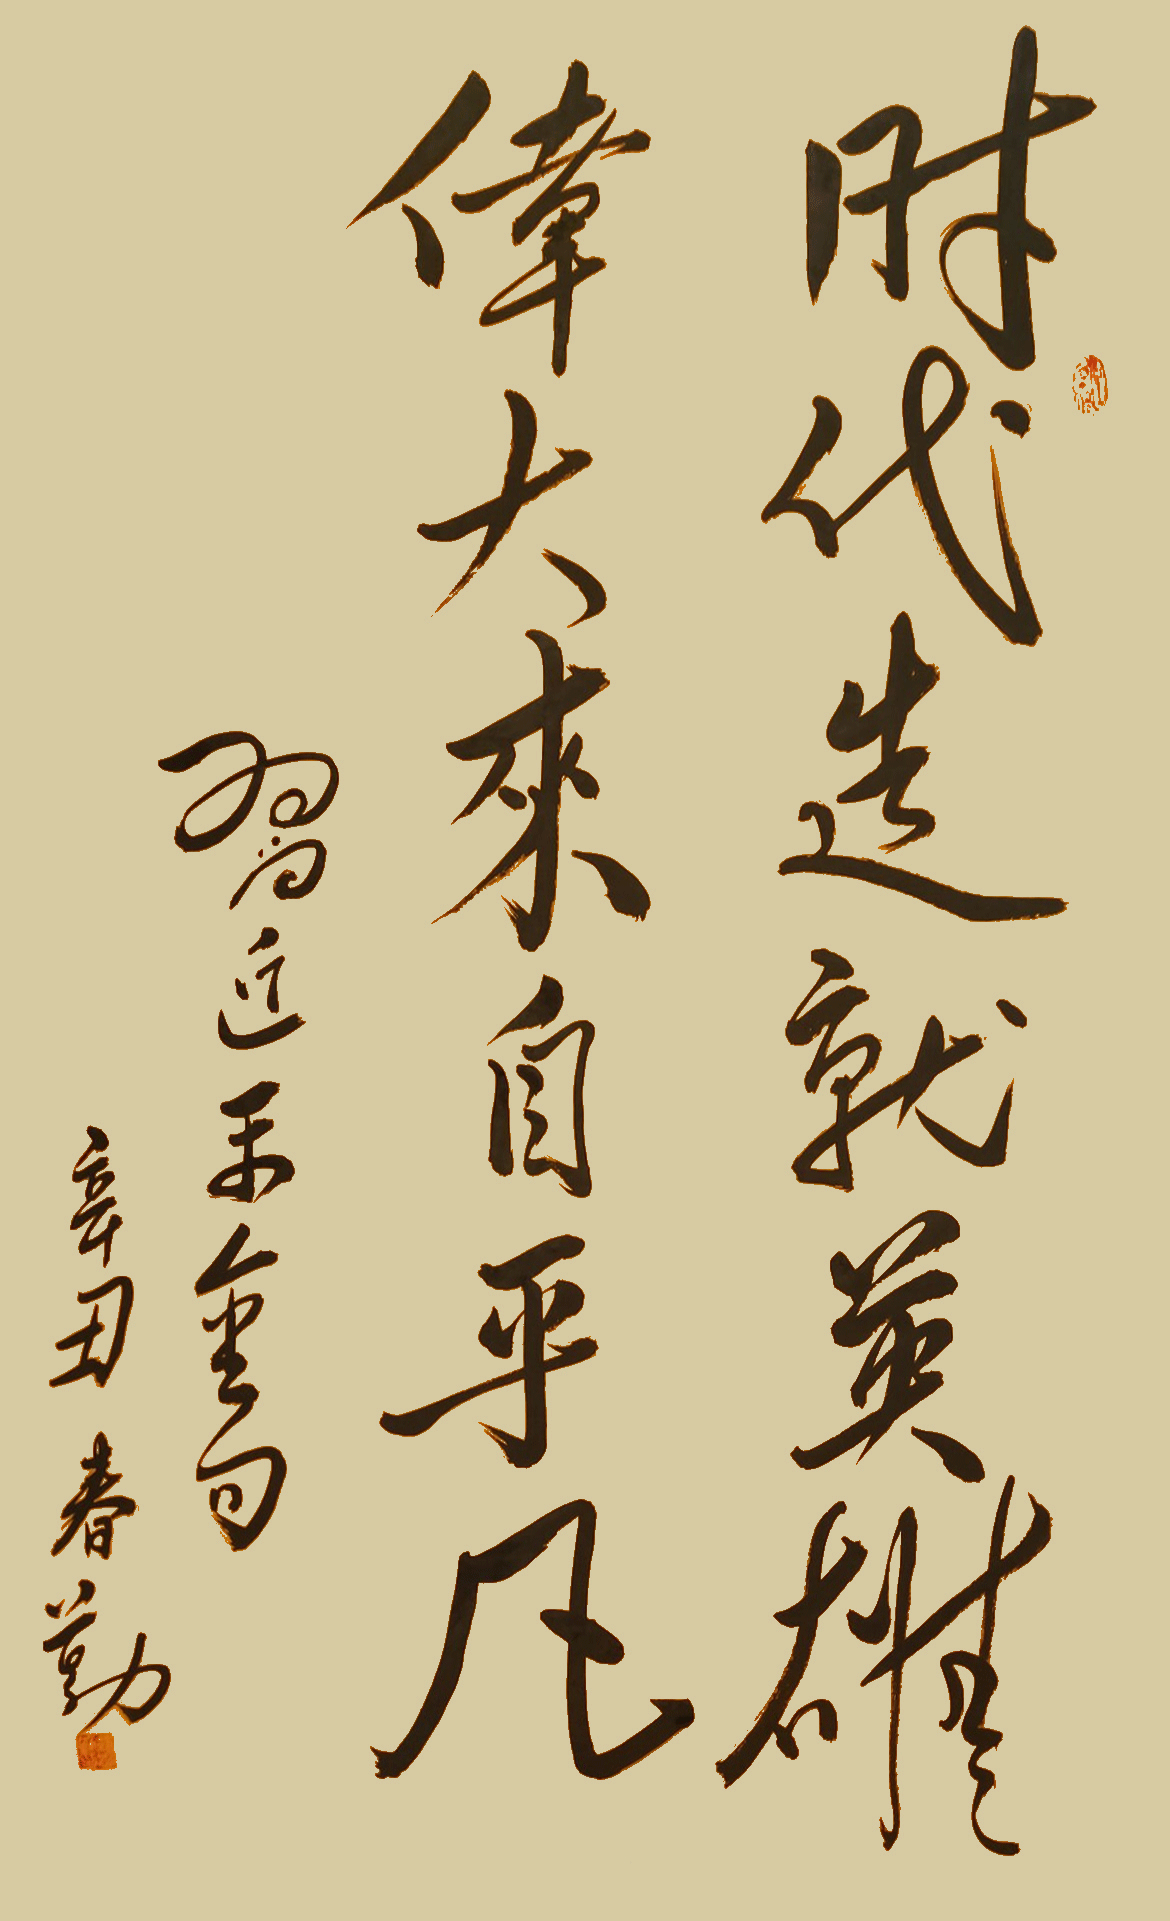 时代造就英雄
偉大來自平凡
習近平金句
辛丑春勤